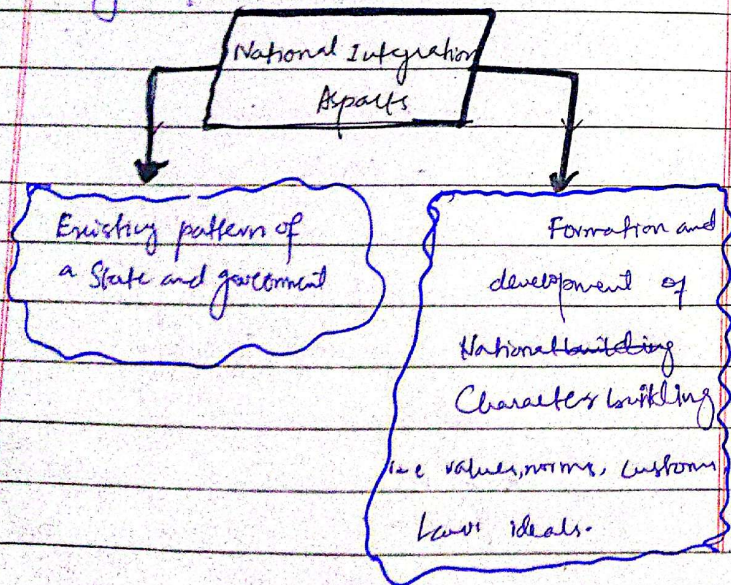 National Integration
Aspacts
Existing pattern of
a State and government
Formation and
development of
National building
Character building
i-e values, norms, customs
Laws ideals.